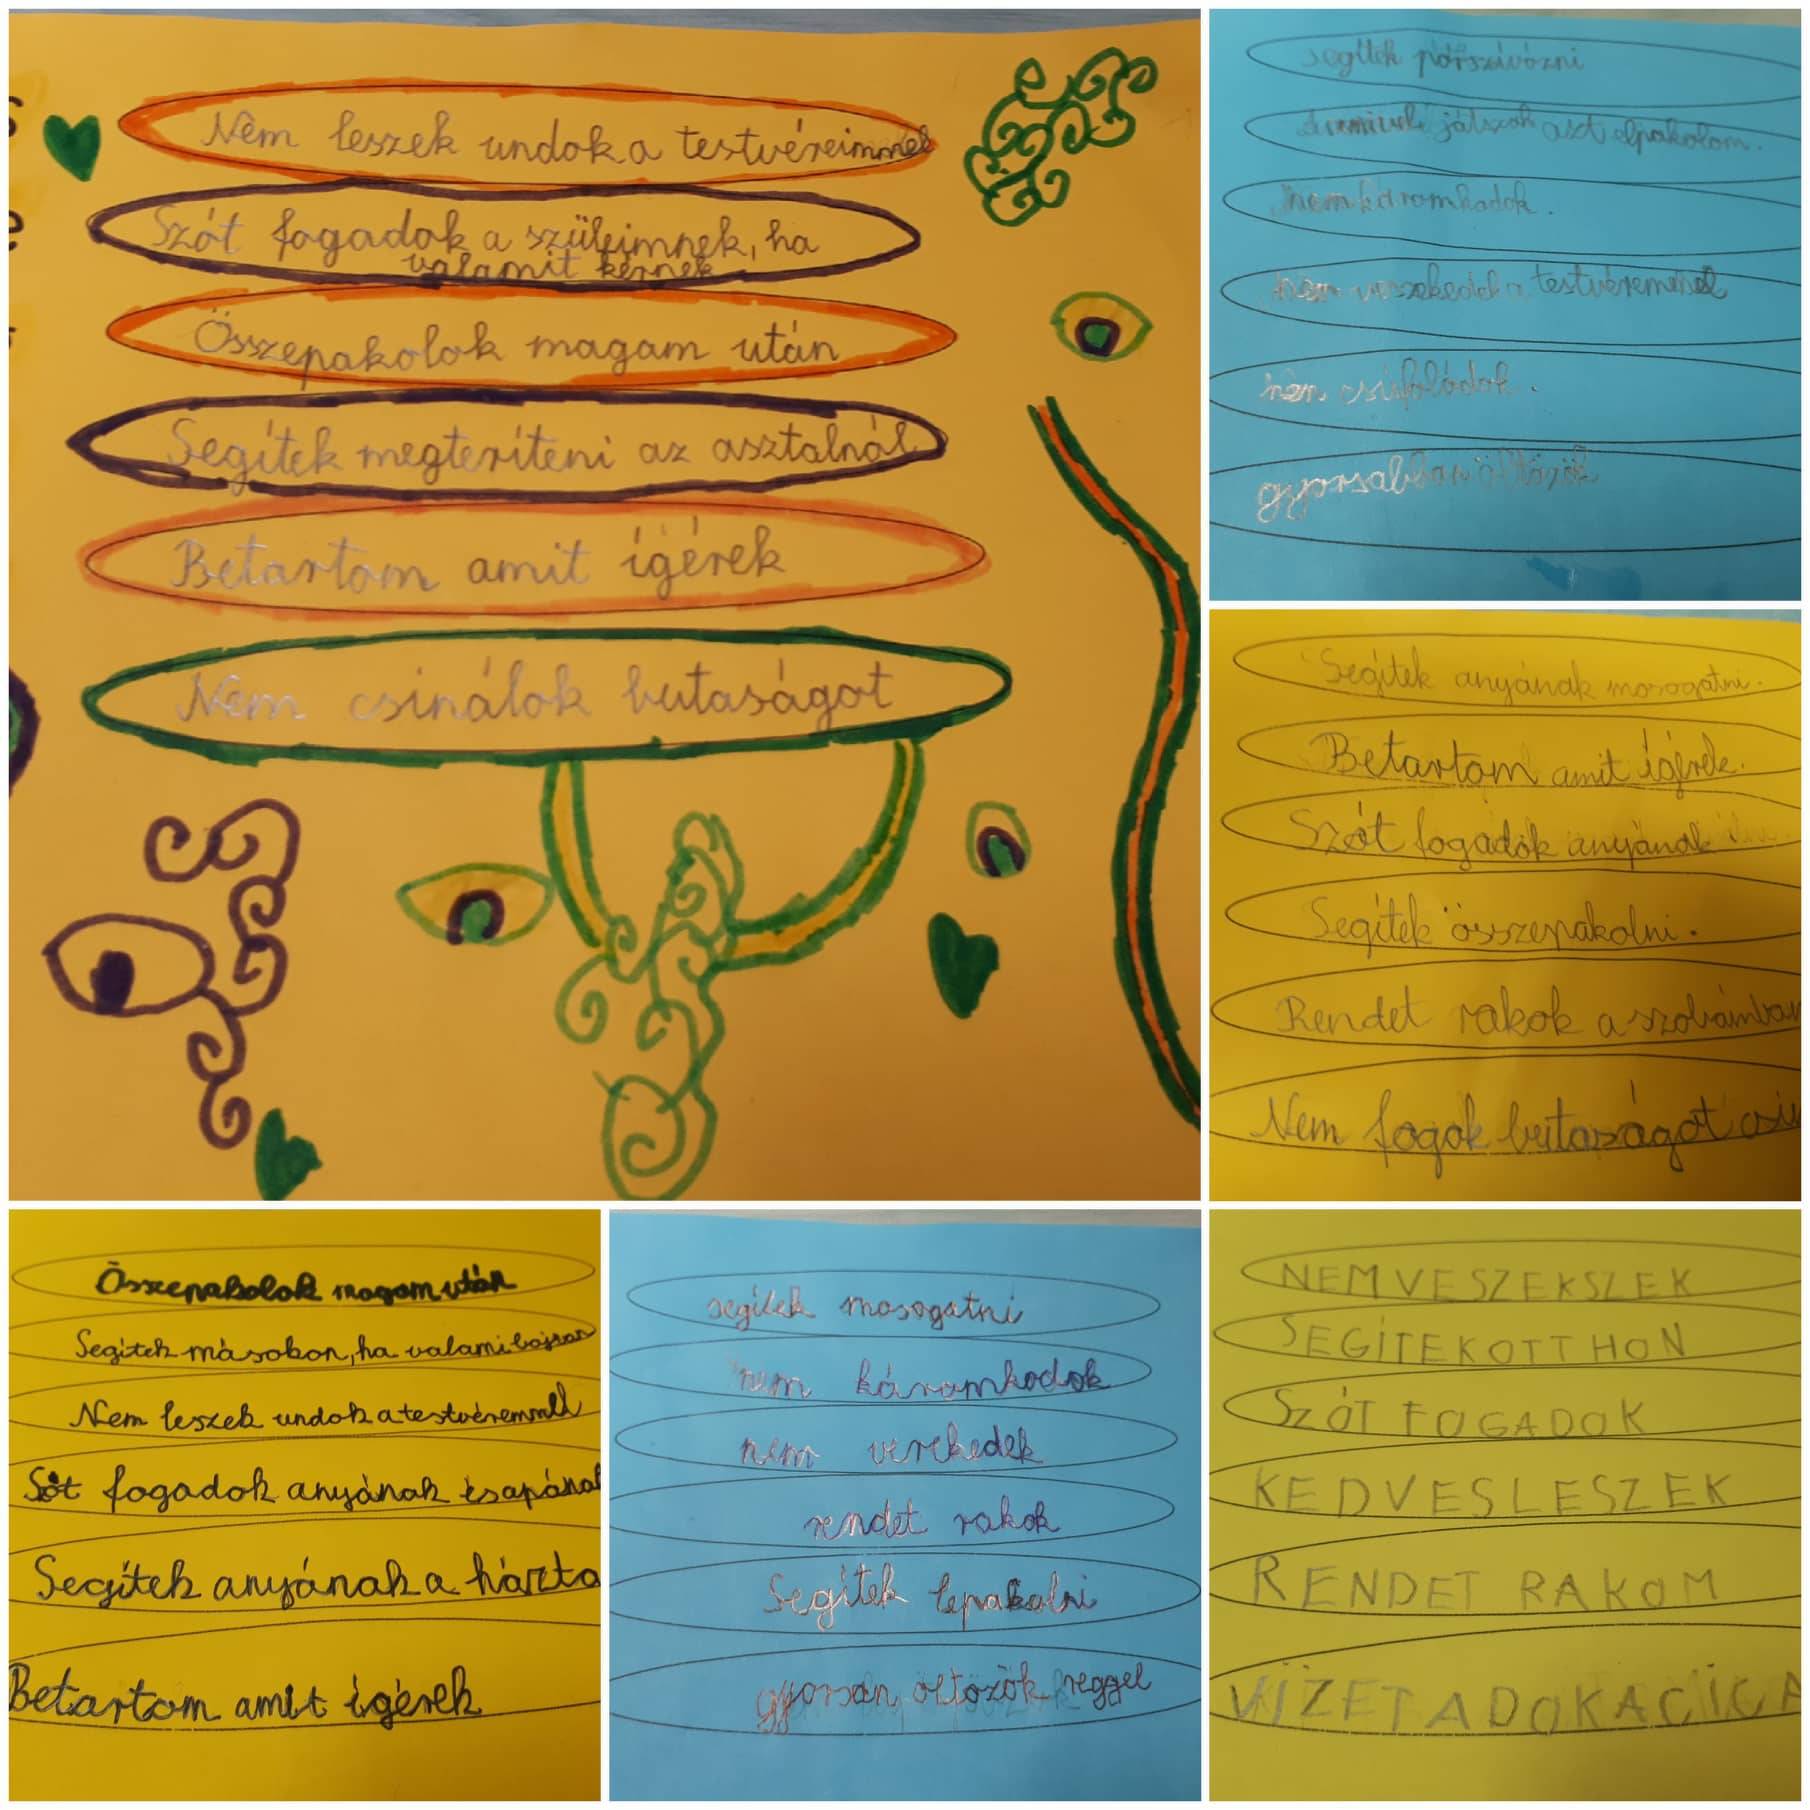 Nem leszek undok a testvéreimmel
Szót fogadok a szüleimnek, ha
valamit kérnek
Összepakolok magam után
Segítek megteríteni az asztalnál
Betartom amit ígérek
Nem csinálok butaságot
segítek pórszívózni
játszok aszt elpakolom.
nem káromkodok.
nem veszekedek a testvéremmel
nem csúfolódok.
gyorsabban öltözök
Segítek anyának mosogatni.
Betartom amit ígérek.
Szót fogadok anyának
Segítek összepakolni.
Rendet rakok a szobámban
Nem fogok butaságot csi
Összepakolok magam után
Segítek másokon, ha valami bajszan
Nem leszek undok a testvéremmel
Sót fogadok anyának és apána
Segítek anyának a házta
Betartom amit ígérek
segítek mosogatni
nem káromkodok
nem verekedek
rendet rakok
Segítek lepakolni
gyorsan öltözök reggel
NEM VESZEKSZEK
SEGÍTEK OTTHON
SZÓT FOGADOK
KEDVES LESZEK
RENDET RAKOM
VÍZET ADOK A CICA